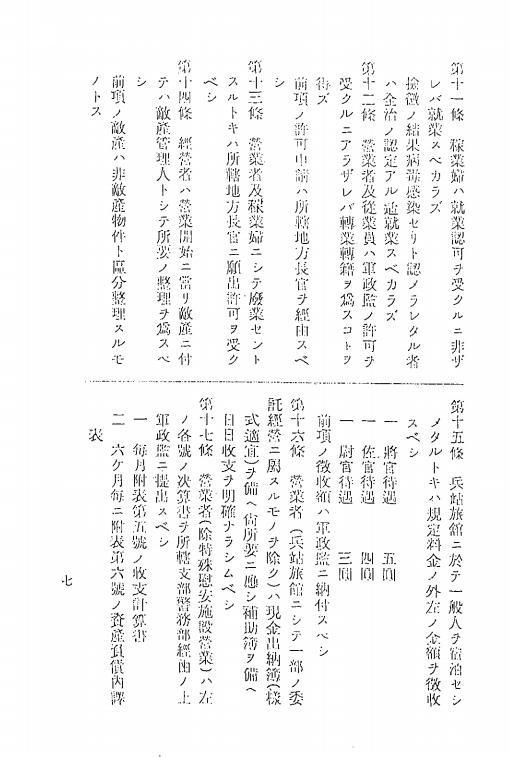 第十一條　稼業婦ハ就業認可ヲ受クルニ非ザ
レバ就業スベカラズ
檢黴ノ結果病毒感染セリト認メラレタル者
ハ全治ノ認定アル迄就業スベカラズ
第十二條　營業者及從業員ハ軍政監ノ許可ヲ
受クルニアラザレバ轉業轉籍ヲ爲スコトヲ
得ズ
前項ノ許可申請ハ所轄地方長官ヲ經由スベ
シ
第十三條　營業者及稼業婦ニシテ廢業セント
スルトキハ所轄地方長官ニ願出許可ヲ受ク
ベシ
第十四條　經營者ハ營業開始ニ當リ敵產ニ付
テハ敵產管理人トシテ所要ノ整理ヲ爲スベ
シ
前項ノ敵產ハ非敵產物件ト區分整理スルモ
ノトス
第十五條　兵站旅館ニ於テ一般人ヲ宿泊セシ
メタルトキハ規定料金ノ外左ノ金額ヲ徵收
スベシ
一　將官待遇　五圓
一　佐官待遇　四圓
一　尉官待遇　三圓
前項ノ徵收額ハ軍政監ニ納付スベシ
第十六條　營業者（兵站旅館ニシテ一部ノ委
託經營ニ屬スルモノヲ除ク）ハ現金出納簿（樣
式適宜）ヲ備ヘ尙所要ニ應シ補助簿ヲ備ヘ
日日收支ヲ明確ナラシムベシ
第十七條　營業者（除特殊慰安施設營業）ハ左
ノ各號ノ決算書ヲ所轄支部警務部經由ノ上
軍政監ニ提出スベシ
一　每月附表第五號ノ收支計算書
二　六ケ月每ニ附表第六號ノ資產負債內譯
表
七